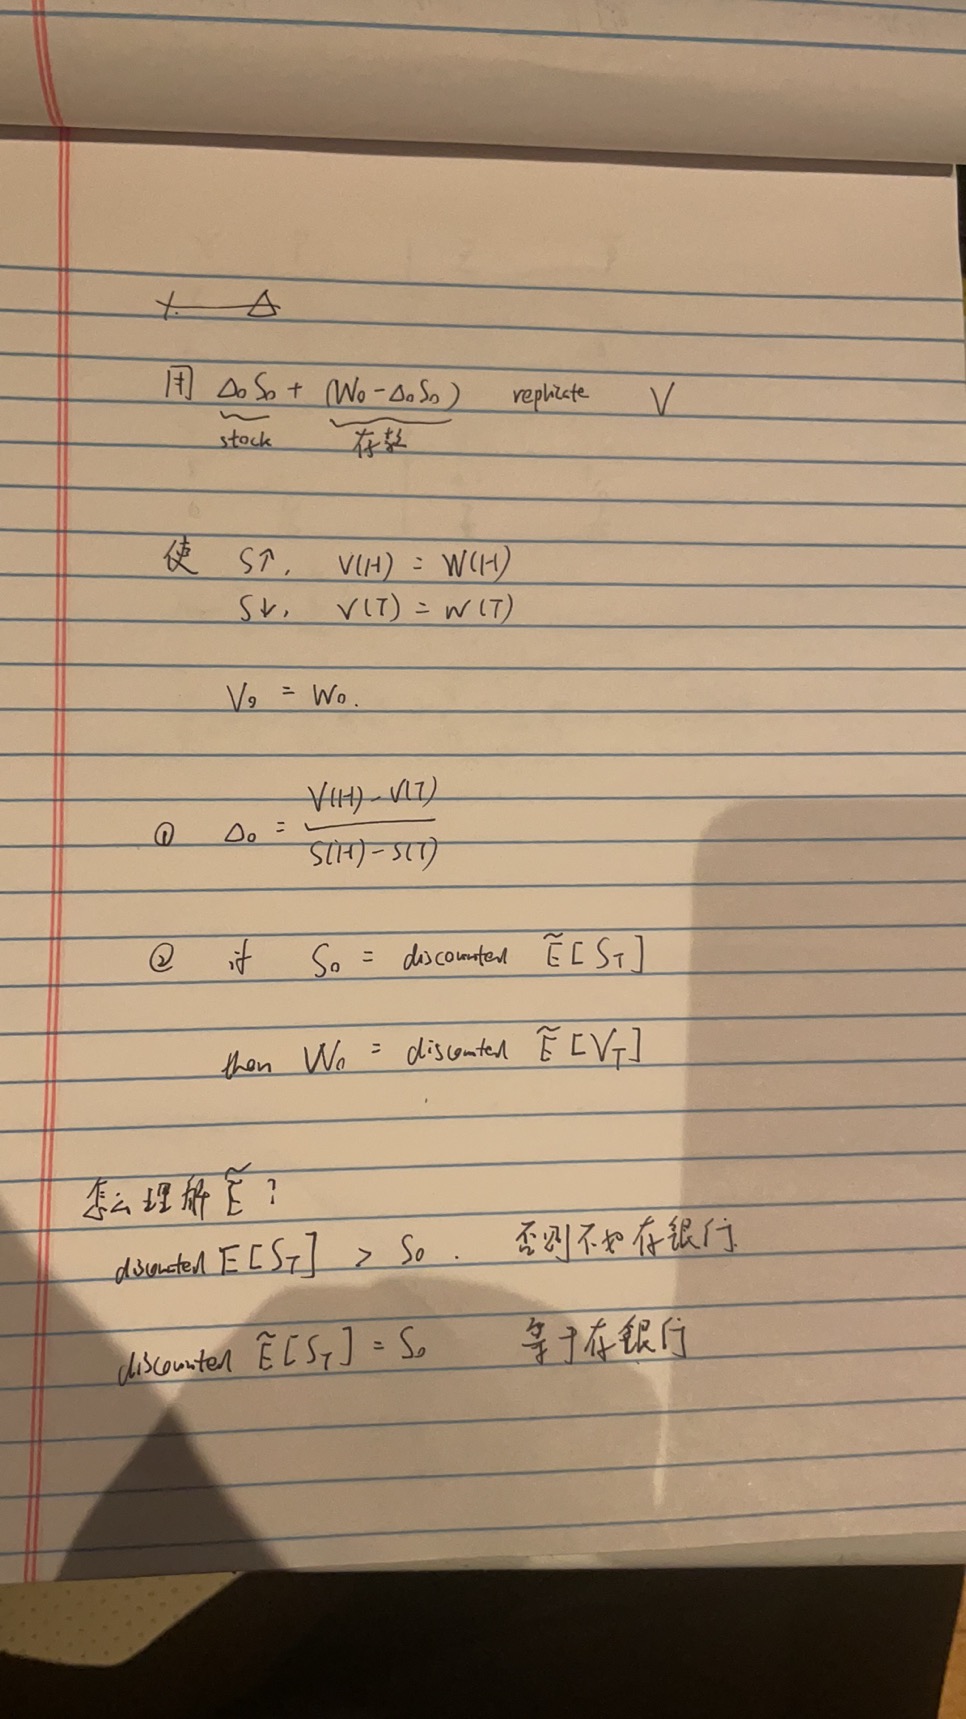 用 Δ₀S₀ + (W₀ - Δ₀S₀) replicate V
stock 存款
使 S↑, V(H) = W(H)
S↓, V(T) = W(T)
V₀ = W₀.
① Δ₀ = (V(H) - V(T)) / (S(H) - S(T))
② if S₀ = discounted Ẽ[S_T]
then W₀ = discounted Ẽ[V_T]
怎么理解 Ẽ?
discounted E[S_T] > S₀. 否则不如存银行.
discounted Ẽ[S_T] = S₀ 等于存银行